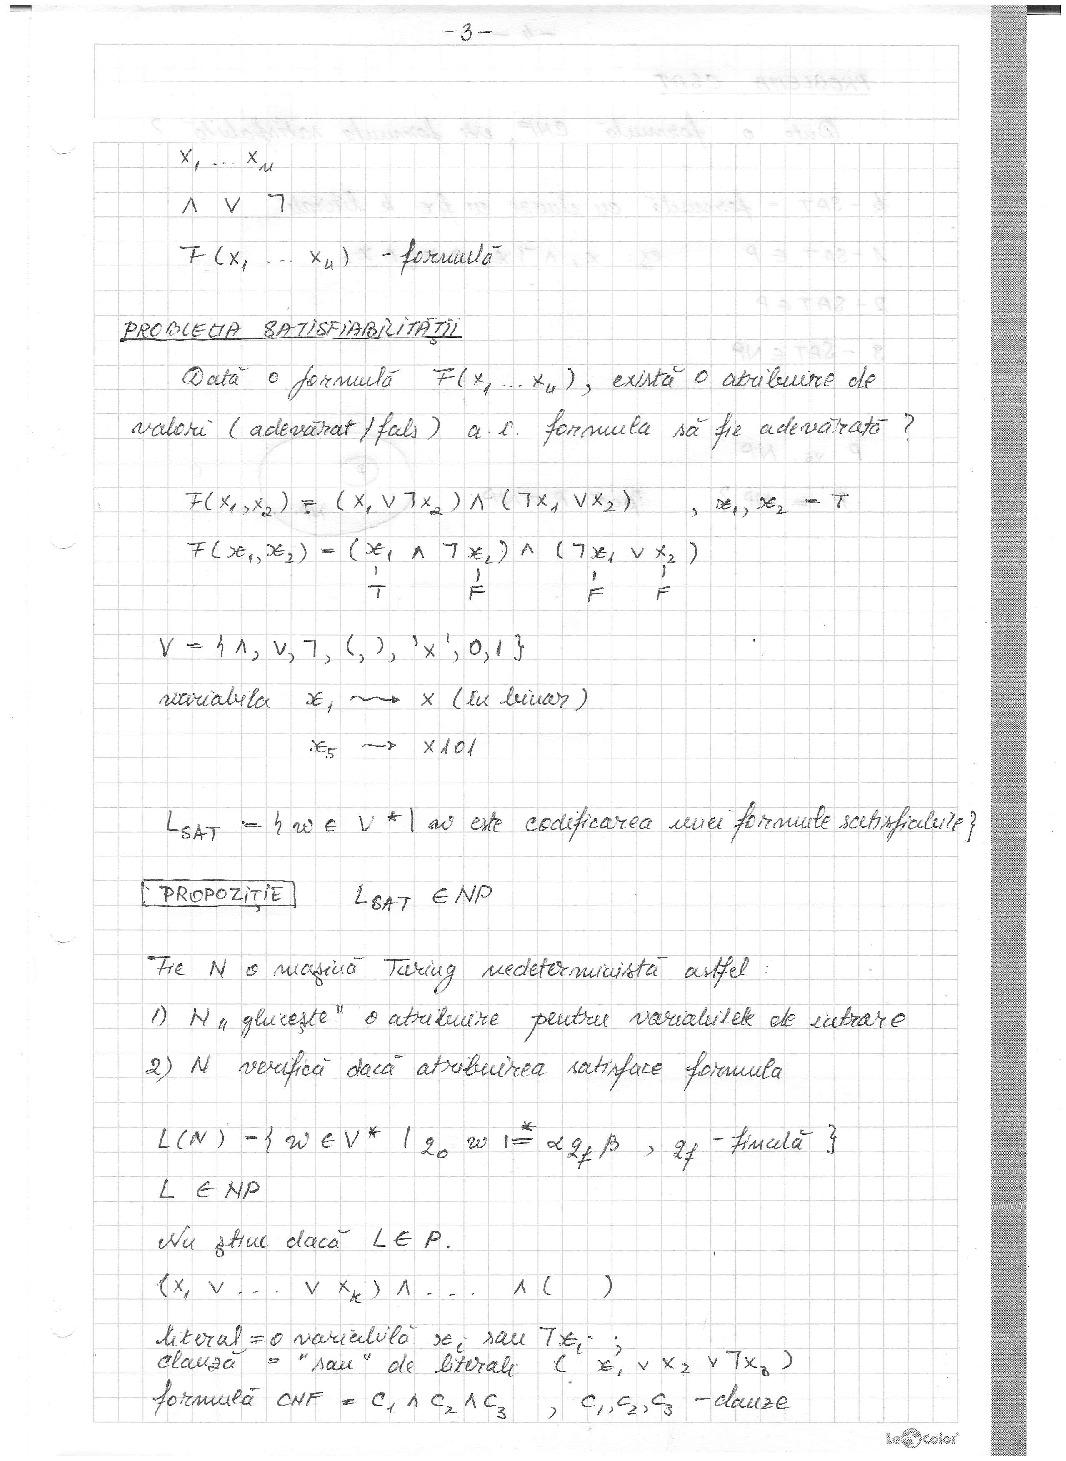 -3-
x₁ ... xₙ
∧ ∨ ⌐
F(x₁ ... xₙ) - formulă
PROBLEMA SATISFIABILITĂŢII
Dată o formulă F(x₁ ... xₙ), există o atribuire de
valori (adevărat/fals) a.î. formula să fie adevărată ?
F(x₁,x₂) = (x₁ ∨ ⌐x₂) ∧ (⌐x₁ ∨ x₂) , x₁, x₂ = T
F(x₁,x₂) = (x₁ ∧ ⌐x₂) ∧ (⌐x₁ ∨ x₂)
T F F F
V = {∧, ∨, ⌐, (, ), 'x', 0, 1}
variabila x₁ ⇝ x (în binar)
x₅ → x101
L_SAT = {w ∈ V* | w este codificarea unei formule satisfiabile}
PROPOZIŢIE L_SAT ∈ NP
Fie N o maşină Turing nedeterministă astfel :
1) N „ghiceşte" o atribuire pentru variabilele de intrare
2) N verifică dacă atribuirea satisface formula
L(N) = {w ∈ V* | q₀ w |=* α q_f β , q_f - finală}
L ∈ NP
Nu ştim dacă L ∈ P.
(x₁ ∨ ... ∨ xₖ) ∧ ... ∧ ( )
literal = o variabilă xᵢ sau ⌐xᵢ ;
clauză = "sau" de literali (x₁ ∨ x₂ ∨ ⌐x₃)
formulă CNF = C₁ ∧ C₂ ∧ C₃ , C₁, C₂, C₃ - clauze
LeColor